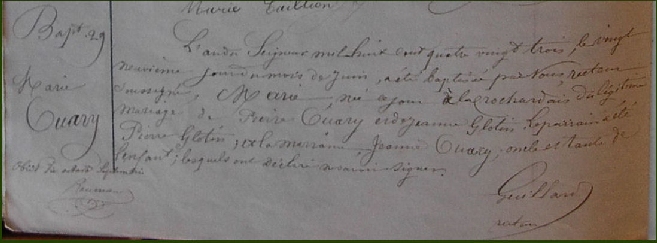 Marie
Bapt. 29
Marie
Tuary
L'an du Seigneur mil huit cent quatre vingt trois, le vingt
neuvième jour du mois de juin, a été baptisée par Nous recteur
soussigné, Marie née ce jour à la rochardais du légitime
mariage de Pierre Tuary et de Jeanne Glotin. Le parrain a été
Pierre Glotin et la marraine, Jeanne Tuary, oncle et tante de
l'enfant; lesquels ont déclaré ne savoir signer.
Guillard